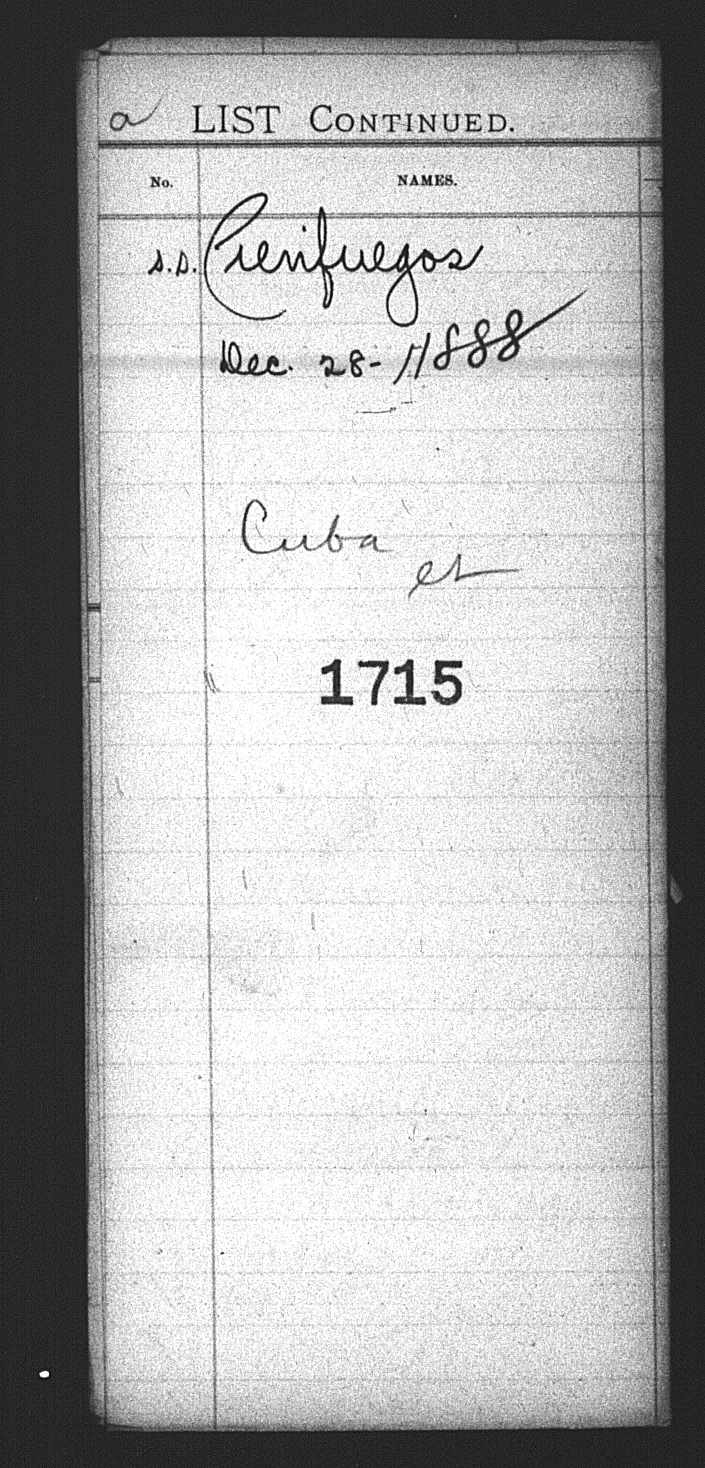 a LIST CONTINUED.
No. NAMES.
s.s. Cienfuegos
Dec. 28-1888
Cuba
et
1715